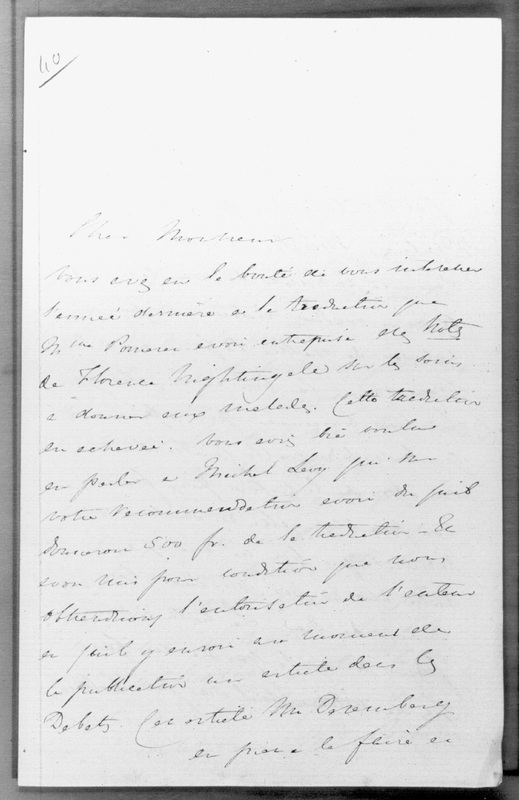 40
Cher Monsieur
Vous avez eu la bonté de vous intéresser
l'année dernière a la traduction que
Mme avait entreprise des Notes
de Florence Nightingale sur les soins
à donner aux malades. Cette traduction
est achevée. Vous aviez bien voulu
en parler a Michel Levy qui sur
votre recommandation avait dit qu'il
donnerait 500 fr. de la traduction - Il
avait mis pour condition que nous
obtiendrions l'autorisation de l'auteur
et qu'il y aurait au moment de
la publication un article dans les
Debats. Cet article Mr Daremberg
est a le faire et